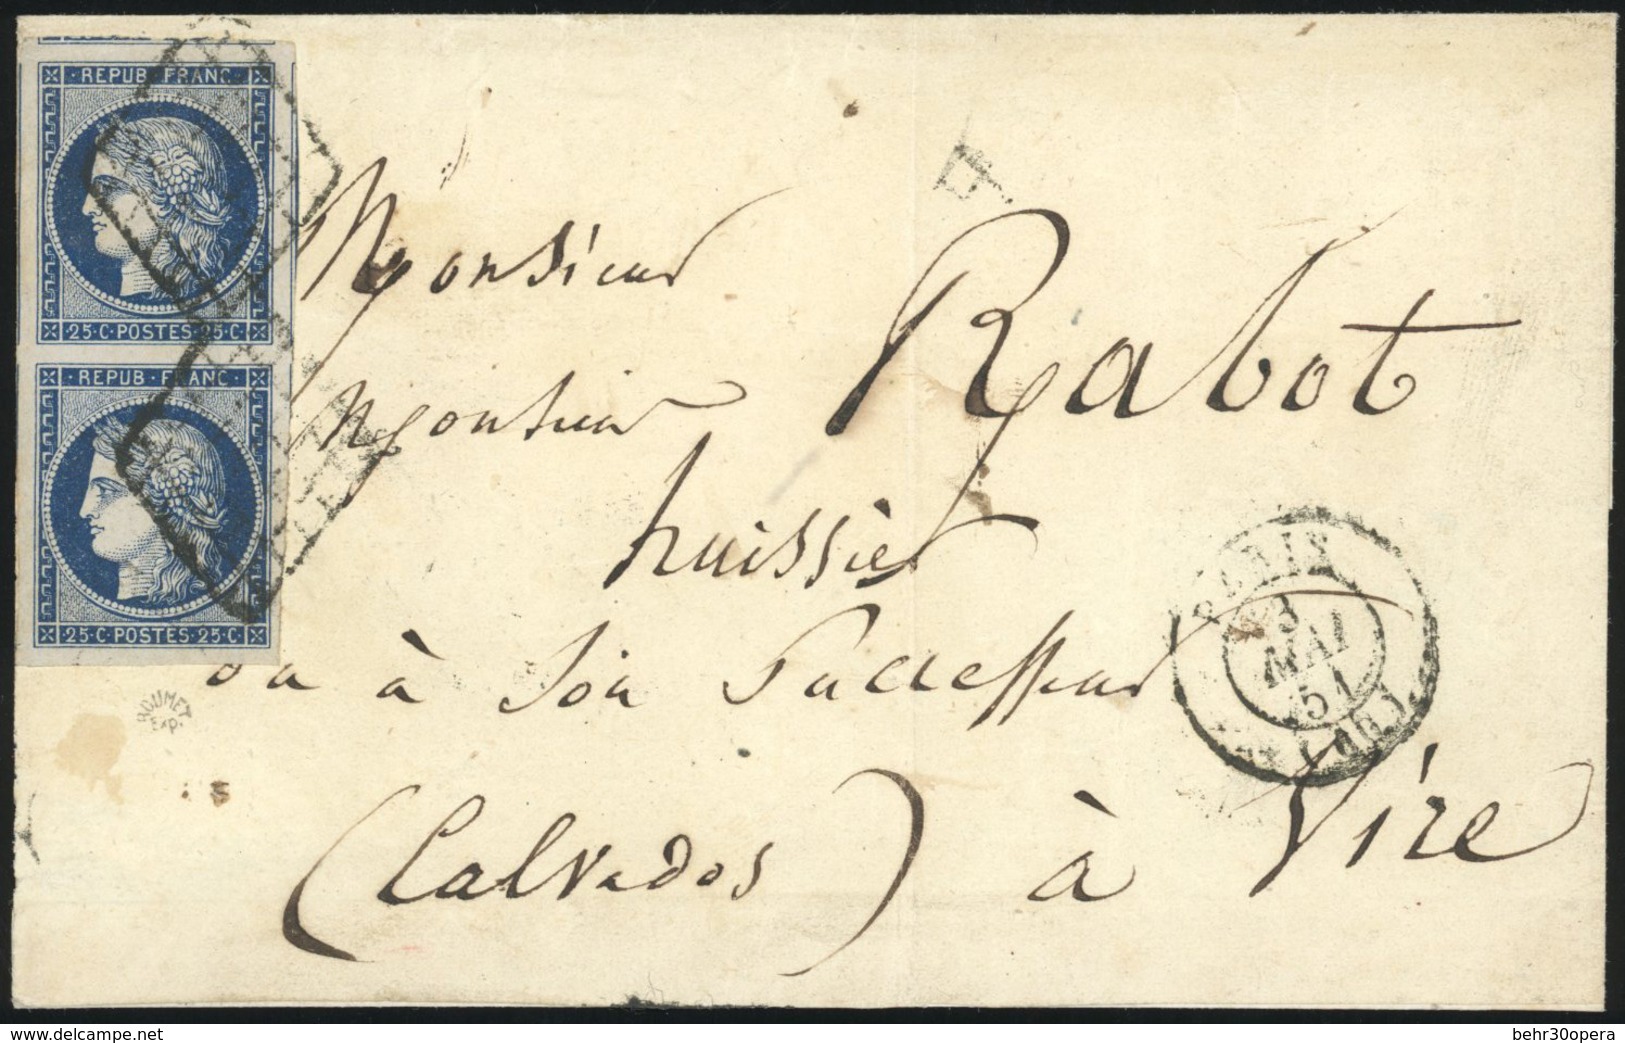 REPUB·FRANC·
25·C·POSTES·25·C
REPUB·FRANC·
25·C·POSTES·25·C
Monsieur
Monsieur Rabot
huissier
ou à son successeur
(Calvados) à Vire
PARIS
3
MAI
51
ROUMET
Exp.
www.delcampe.net
behr30opera